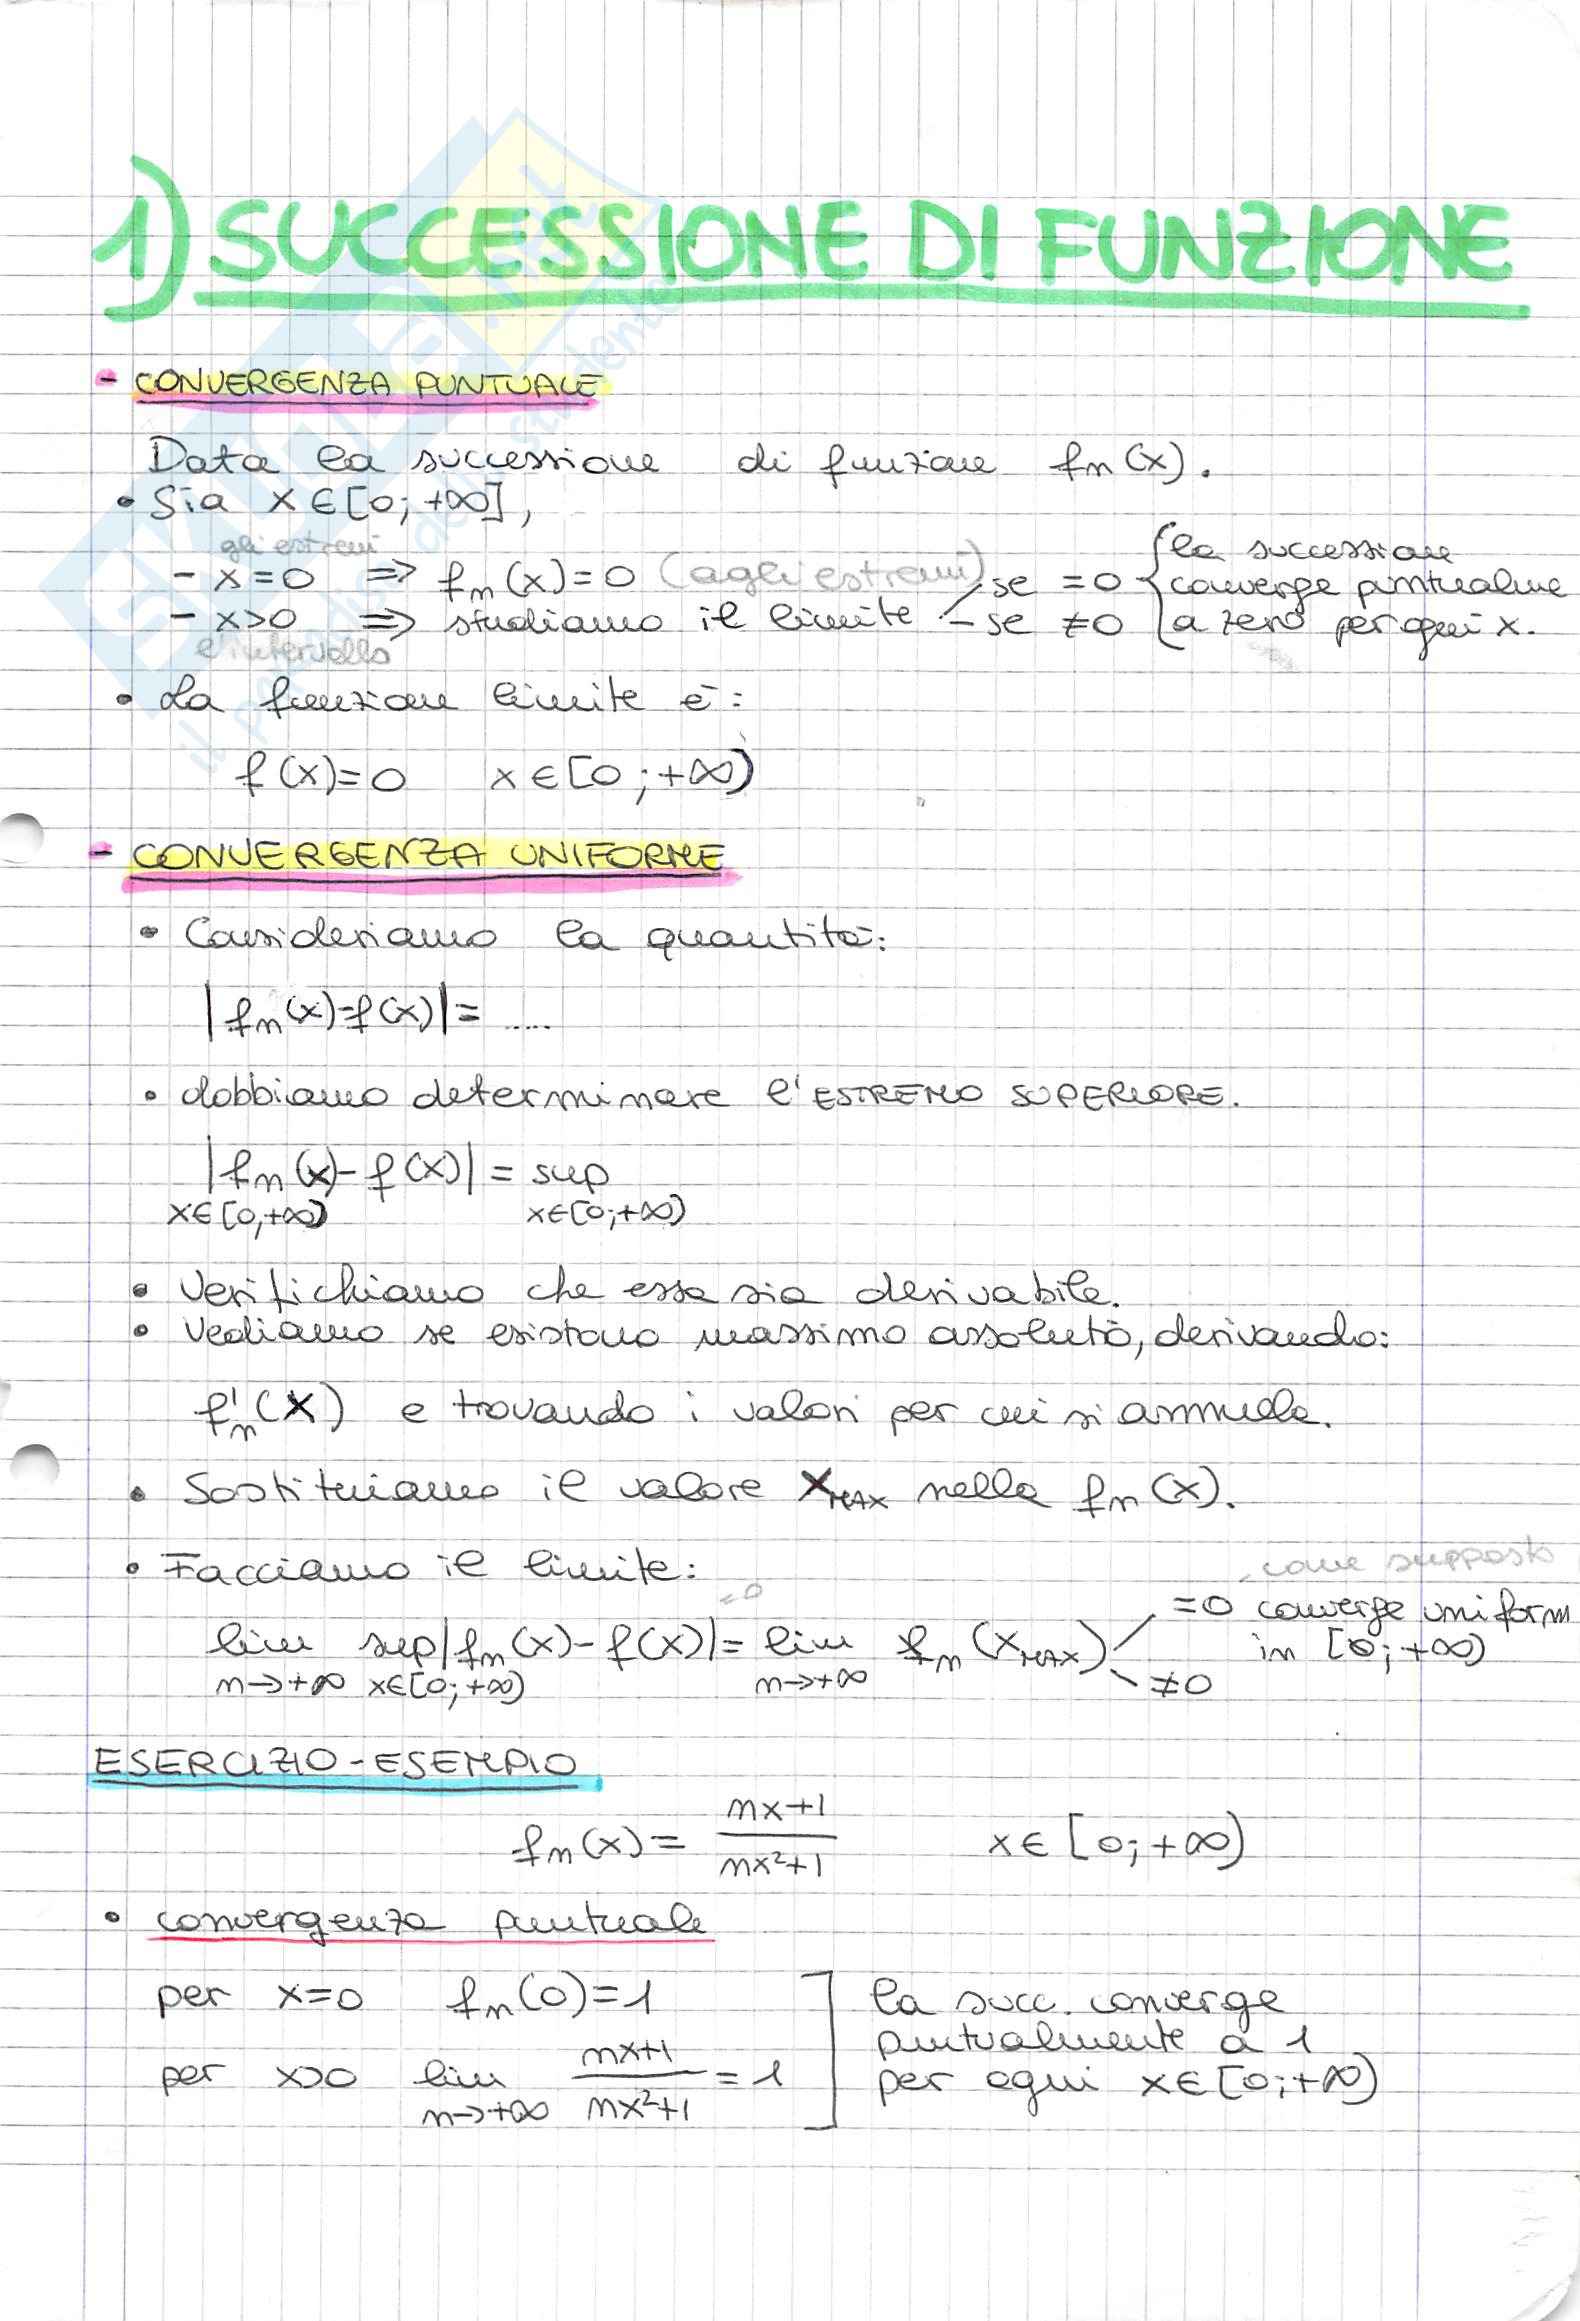 1) SUCCESSIONE DI FUNZIONE
- CONVERGENZA PUNTUALE
Data la successione di funzione fn(x).
• Sia x∈[0;+∞],
gli estremi
- x=0 => fn(x)=0 (agli estremi) se =0 { la successione
- x>0 => studiamo il limite - se ≠0 converge puntualme
e intervallo a zero per ogni x.
• La funzione limite è:
f(x)=0 x∈[0;+∞)
- CONVERGENZA UNIFORME
• Consideriamo la quantità:
|fn(x)-f(x)|= .....
• dobbiamo determinare l'ESTREMO SUPERIORE.
|fn(x)-f(x)| = sup
x∈[0,+∞) x∈[0;+∞)
• Verifichiamo che essa sia derivabile.
• Vediamo se esistono massimo assoluto, derivando:
f'n(x) e trovando i valori per cui si annulla.
• Sostituiamo il valore xMAX nella fn(x).
• Facciamo il limite: come supposto
=0 =0 converge uniform
lim sup|fn(x)-f(x)|= lim fn(xMAX) in [0;+∞)
n→+∞ x∈[0;+∞) n→+∞ ≠0
ESERCIZIO-ESEMPIO
fn(x)= nx+1 / nx²+1 x∈[0;+∞)
• convergenza puntuale
per x=0 fn(0)=1 ] la succ. converge
puntualmente a 1
per x>0 lim n→+∞ nx+1 / nx²+1 =1 per ogni x∈[0;+∞)